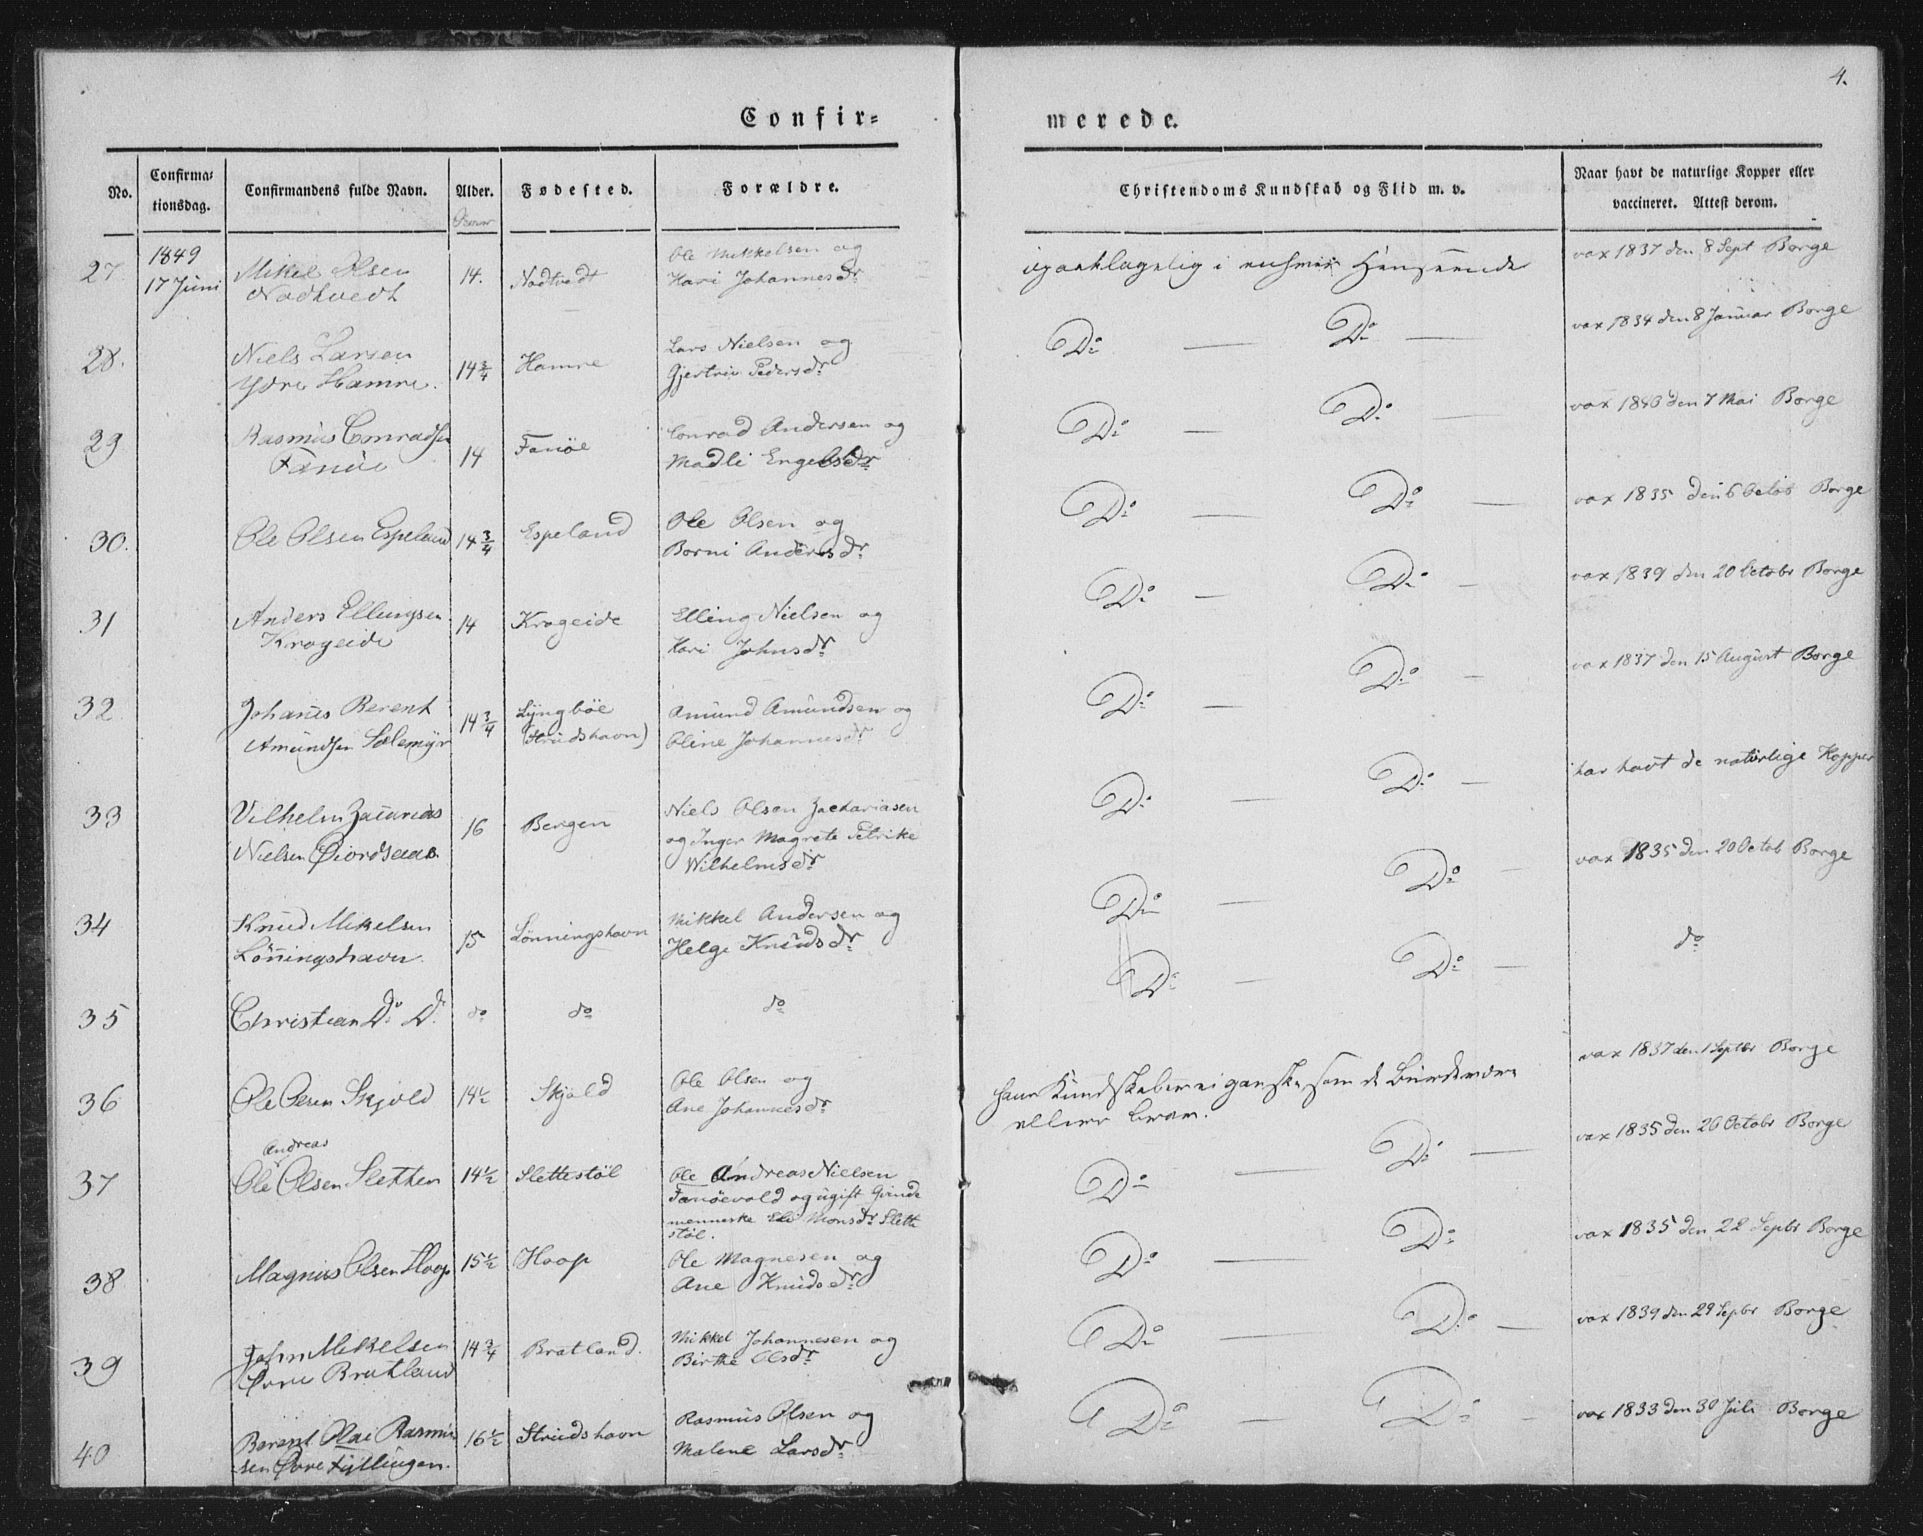 4.
Confir=
merede.
No.
Confirma=
tionsdag.
Confirmandens fulde Navn.
Alder.
Fødested.
Forældre.
Christendoms Kundskab og Flid m. v.
Naar havt de naturlige Kopper eller
vaccineret. Attest derom.
27.
1849
17 Juni
Mikel Olsen
Nødtvedt
14.
Nødtvedt
Ole Mikkelsen og
Kari Johannesdr
upaaklagelig i enhver Henseende
vax 1837 den 8 Sept Borge
28.
Niels Larsen
Ydre Hamre.
14 3/4
Hamre
Lars Nielsen og
Gjertrin Pedersdr
Do — Do —
vax 1834 den 8 Januar Borge
29
Rasmus Conradsen
Fanöe
14
Fanöe
Conrad Andersen og
Madli Engelsdr
Do — Do —
vax 1840 den 7 Mai Borge
30.
Ole Olsen Espeland
14 3/4
Espeland
Ole Olsen og
Borni Andersdr
Do — Do —
vax 1835 den 6 Octob Borge
31
Anders Ellingsen
Krogeide
14
Krogeide
Elling Nielsen og
Kari Johnsdr
Do — Do —
vax 1839 den 20 Octobr Borge
32
Johanes Berent
Amundsen Sælemyr
14 3/4
Lyngböe
(Strudshavn)
Amund Amundsen og
Oline Johannesdr
Do — Do —
vax 1837 den 15 August Borge
33
Vilhelm Zacarias
Nielsen
16
Bergen
Niels Olsen Zachariasen
og Inger Magrete Petrike
Wilhelmsdr
Do — Do —
har havt de naturlige Kopper
34
Knud Mikelsen
Lönningshavn.
15
Lönningshavn
Mikkel Andersen og
Helge Knudsdr
Do — Do —
vax 1835 den 20 Octob Borge
35
Christian Do Do
do
do
do
Do — Do —
do
36
Ole Olsen Skjold
14 1/2
Skjold
Ole Olsen og
Ane Johannesdr
hans Kundskaber ei ganske som de burde være
ellers brav.
vax 1837 den 1 Septbr Borge
37
Andreas
Ole Olsen Sletten
14 1/2
Slettestöl
Ole Andreas Nielsen
Fanöevold og ugift Qvinde
menneske Eli Monsdr Slette
stöl.
Do — Do —
vax 1835 den 20 Octobr Borge
38
Magnus Olsen Hoop
15 1/2
Hoop
Ole Magnesen og
Ane Knudsdr
Do — Do
vax 1835 den 22 Septbr Borge
39
John Mikelsen
Övre Bratland
14 3/4
Bratland.
Mikkel Johannesen og
Birthe Olsdr
Do — Do —
vax 1839 den 29 Septbr Borge
40
Berent Olai Rasmus
sen Övre Fyllingen.
16 1/2
Strudshavn
Rasmus Olsen og
Malene Larsdr
Do — Do —
vax 1833 den 30 Juli Borge